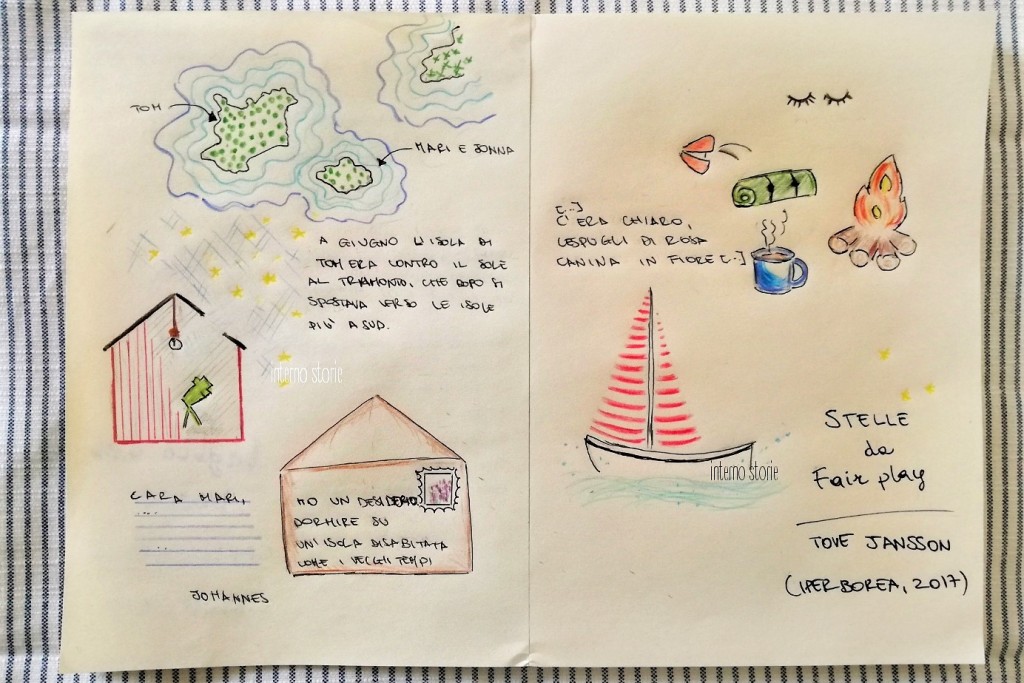 TOM
MARI E JONNA
A GIUGNO L'ISOLA DI
TOM ERA CONTRO IL SOLE
AL TRAMONTO, CHE DOPO SI
SPOSTAVA VERSO LE ISOLE
PIÙ A SUD.
interno storie
CARA MARI,
....
JOHANNES
HO UN DESIDERIO
DORMIRE SU
UN'ISOLA DISABITATA
COME I VECCHI TEMPI
[...]
C'ERA CHIARO,
CESPUGLI DI ROSA
CANINA IN FIORE [...]
interno storie
STELLE
da
Fair play
TOVE JANSSON
(IPERBOREA, 2017)